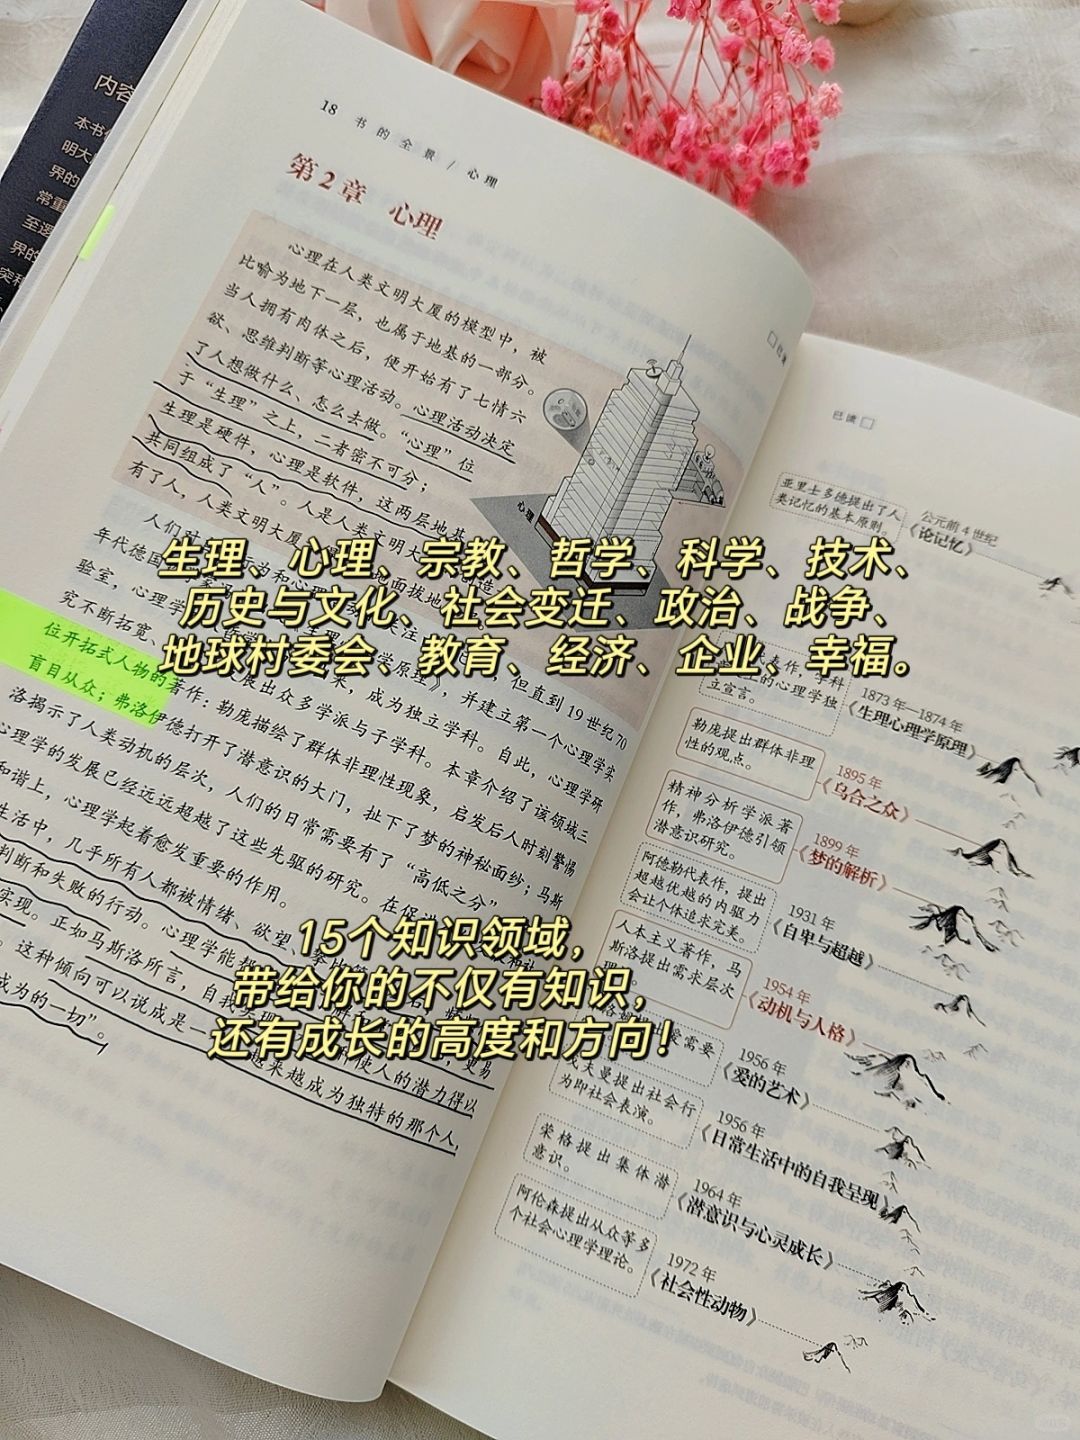 内容
本书
明大
界的
常重
至逻
界的
突
18 书的全景 / 心理
第2章 心理
心理在人类文明大厦的模型中，被
比喻为地下一层，也属于地基的一部分。
当人拥有肉体之后，便开始有了七情六
欲、思维判断等心理活动。心理活动决定
了人想做什么、怎么去做。“心理”位
于“生理”之上，二者密不可分；
生理是硬件，心理是软件，这两层地基
共同组成了“人”。人是人类文明大
有了人，人类文明大厦
心理
人们对
年代德国
但直到19世纪70
验室，心理学
学原理》，并建立第一个心理学实
究不断拓宽、
发展出众多学派与子学科。
来，成为独立学科。自此，心理学研
位开拓式人物的著作：勒庞描绘了群体非理性现象，启发后人时刻警惕
本章介绍了该领域三
盲目从众；弗洛伊德打开了潜意识的大门，扯下了梦的神秘面纱；马斯
洛揭示了人类动机的层次，人们的日常需要有了“高低之分”
心理学的发展已经远远超越了这些先驱的研究。在促进
和谐上，心理学起着愈发重要的作用。
生活中，几乎所有人都被情绪、欲望、
判断和失败的行动。心理学能
实现。正如马斯洛所言，自我
更易
使人的潜力得以
。这种倾向可以说成是一
越来越成为独特的那个人，
成为的一切”。
生理、心理、宗教、哲学、科学、技术、
历史与文化、社会变迁、政治、战争、
地球村委会、教育、经济、企业、幸福。
15个知识领域，
带给你的不仅有知识，
还有成长的高度和方向！
已读
亚里士多德提出了人
类记忆的基本原则。
公元前4世纪
《论记忆》
代表作，学科
的心理学独
立宣言。
1873年—1874年
《生理心理学原理》
勒庞提出群体非理
性的观点。
1895年
《乌合之众》
精神分析学派著
作，弗洛伊德引领
潜意识研究。
1899年
《梦的解析》
阿德勒代表作，提出
超越优越的内驱力
会让个体追求完美。
1931年
《自卑与超越》
人本主义著作，马
斯洛提出需求层次
1954年
《动机与人格》
爱需要
1956年
《爱的艺术》
夫曼提出社会行
为即社会表演。
1956年
《日常生活中的自我呈现》
荣格提出集体潜
意识。
1964年
《潜意识与心灵成长》
阿伦森提出从众等多
个社会心理学理论。
1972年
《社会性动物》